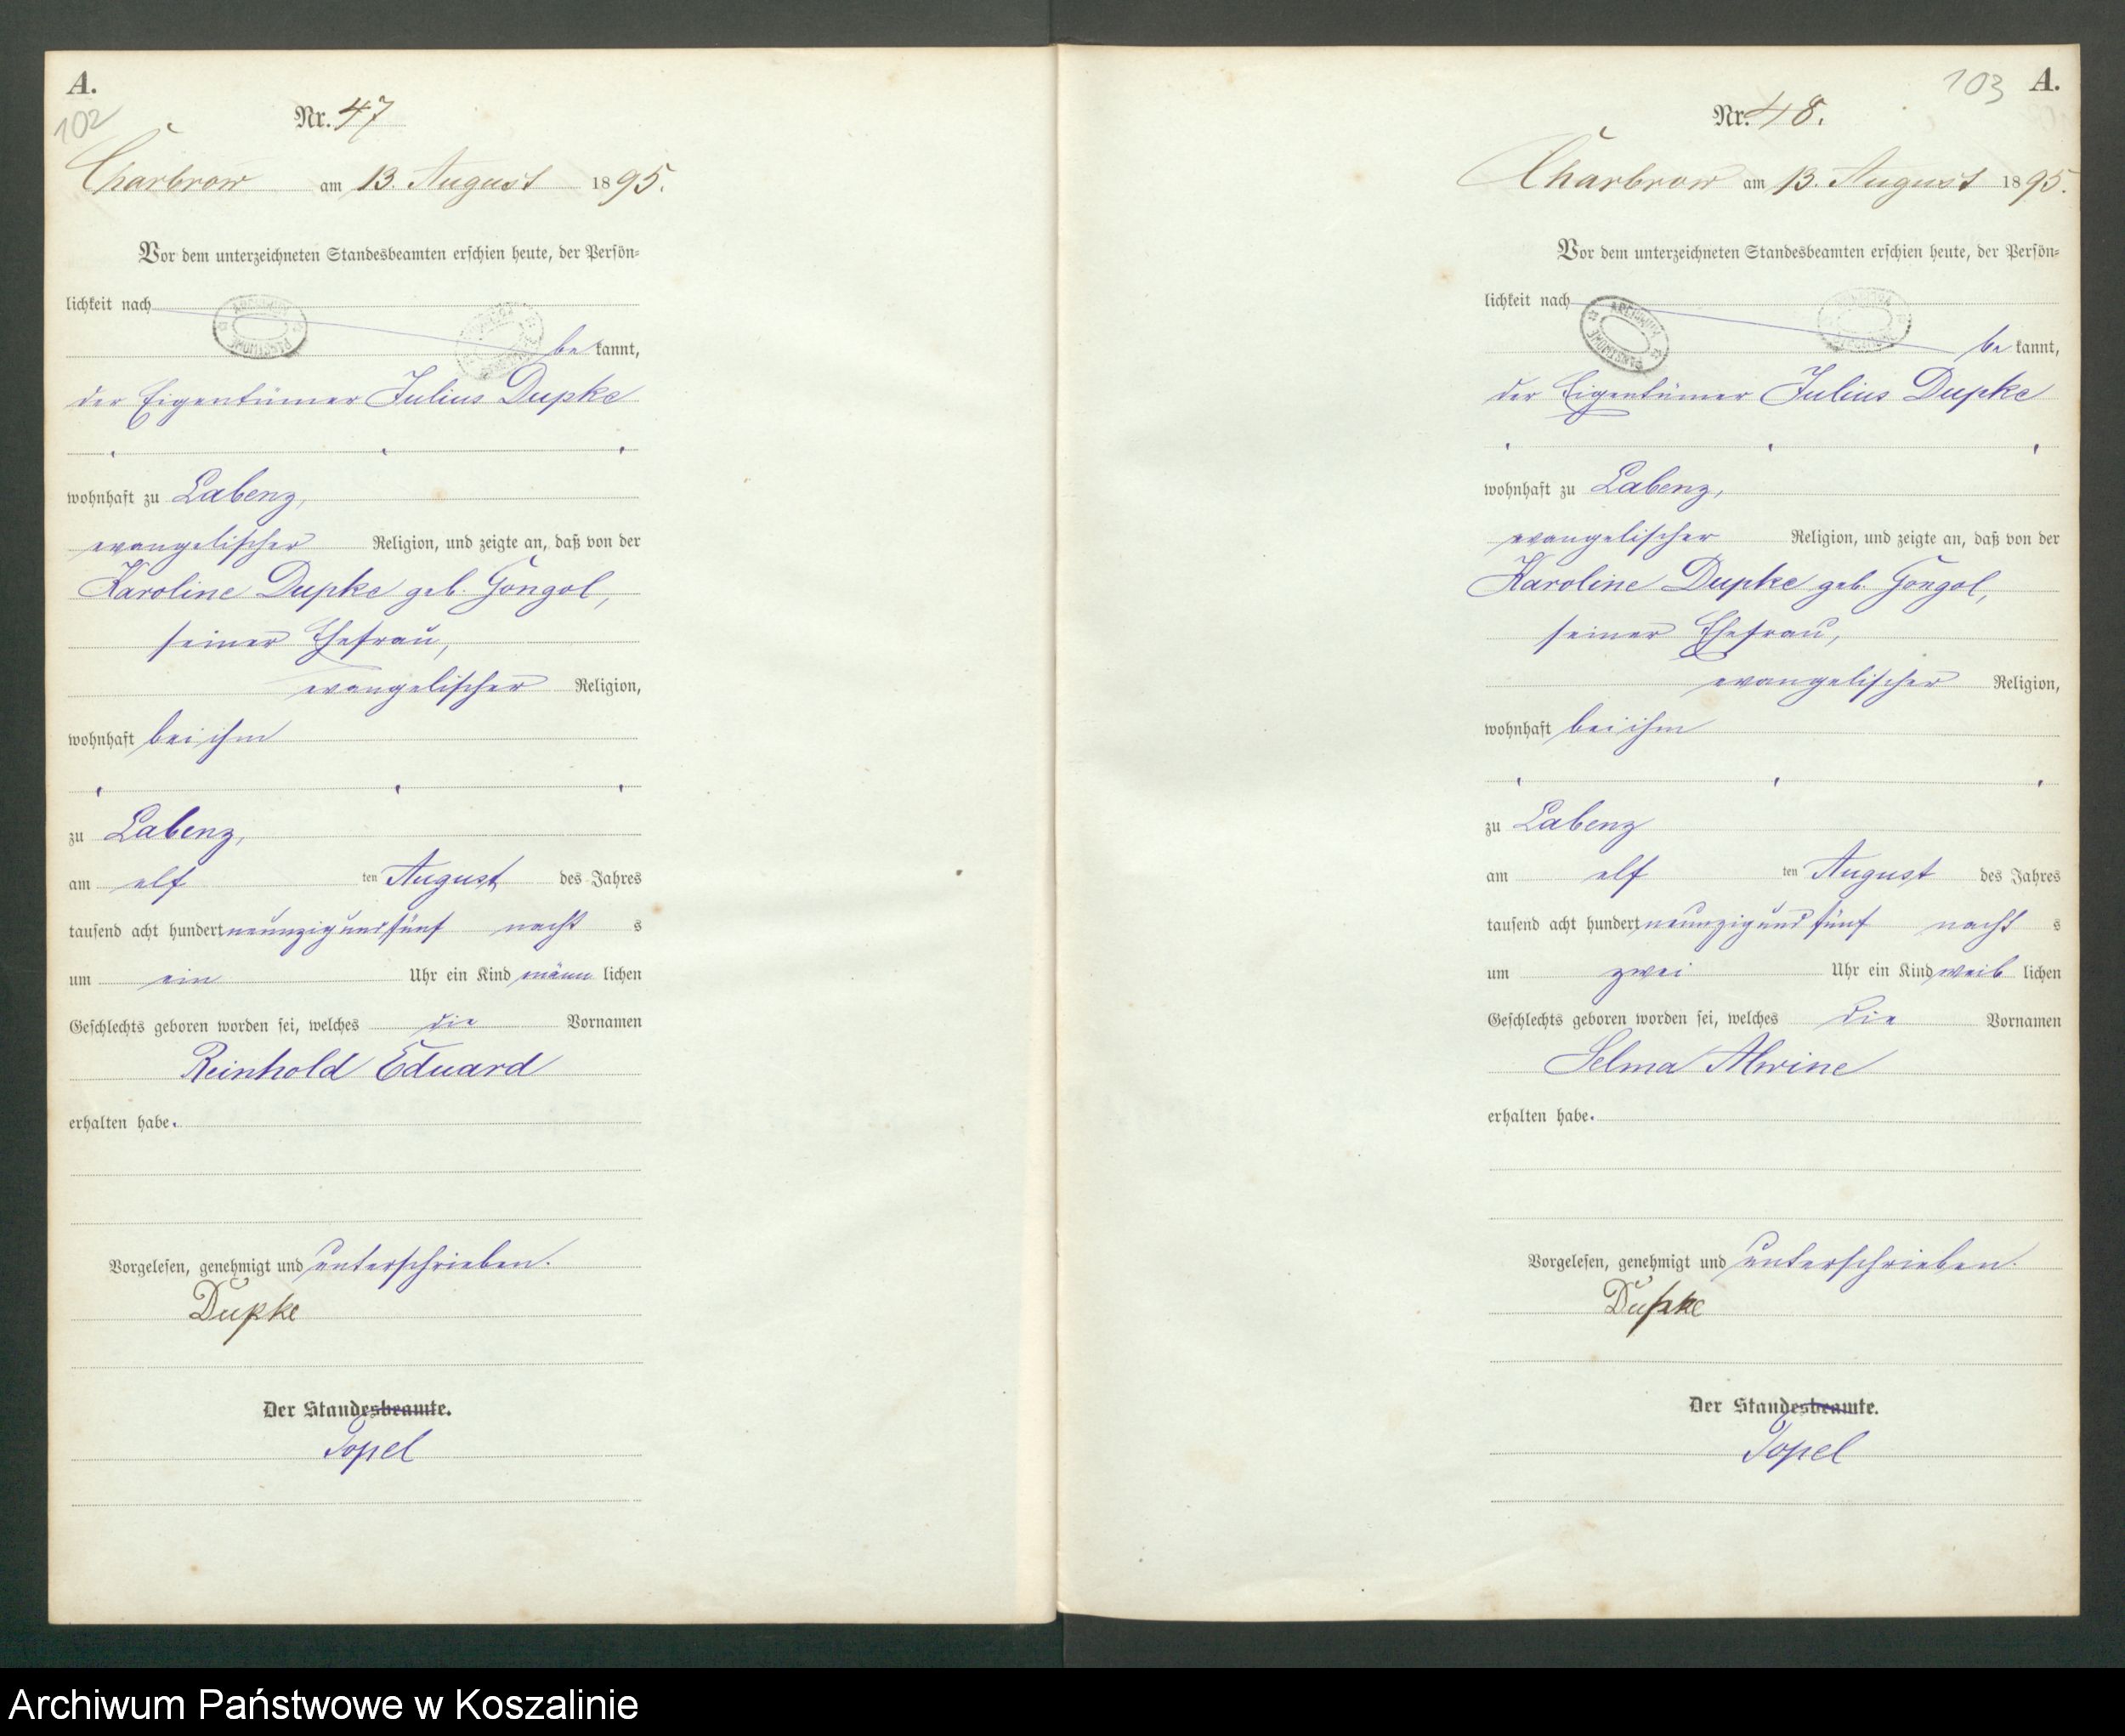 A.
102
Nr. 47
Charbrow am 13. August 1895.
Vor dem unterzeichneten Standesbeamten erschien heute, der Persön-
lichkeit nach
be kannt,
der Eigentümer Julius Dupke
wohnhaft zu Labenz,
evangelischer Religion, und zeigte an, daß von der
Karoline Dupke geb. Gongol,
seiner Ehefrau,
evangelischer Religion,
wohnhaft bei ihm
zu Labenz,
am elf ten August des Jahres
tausend acht hundert neunzig und fünf nacht s
um ein Uhr ein Kind männ lichen
Geschlechts geboren worden sei, welches die Vornamen
Reinhold Eduard
erhalten habe.
Vorgelesen, genehmigt und unterschrieben.
Dupke
Der Standesbeamte.
Topel
103 A.
Nr. 48.
Charbrow am 13. August 1895.
Vor dem unterzeichneten Standesbeamten erschien heute, der Persön-
lichkeit nach
be kannt,
der Eigentümer Julius Dupke
wohnhaft zu Labenz,
evangelischer Religion, und zeigte an, daß von der
Karoline Dupke geb. Gongol,
seiner Ehefrau,
evangelischer Religion,
wohnhaft bei ihm
zu Labenz
am elf ten August des Jahres
tausend acht hundert neunzig und fünf nacht s
um zwei Uhr ein Kind weib lichen
Geschlechts geboren worden sei, welches die Vornamen
Selma Alwine
erhalten habe.
Vorgelesen, genehmigt und unterschrieben.
Dupke
Der Standesbeamte.
Topel
Archiwum Państwowe w Koszalinie